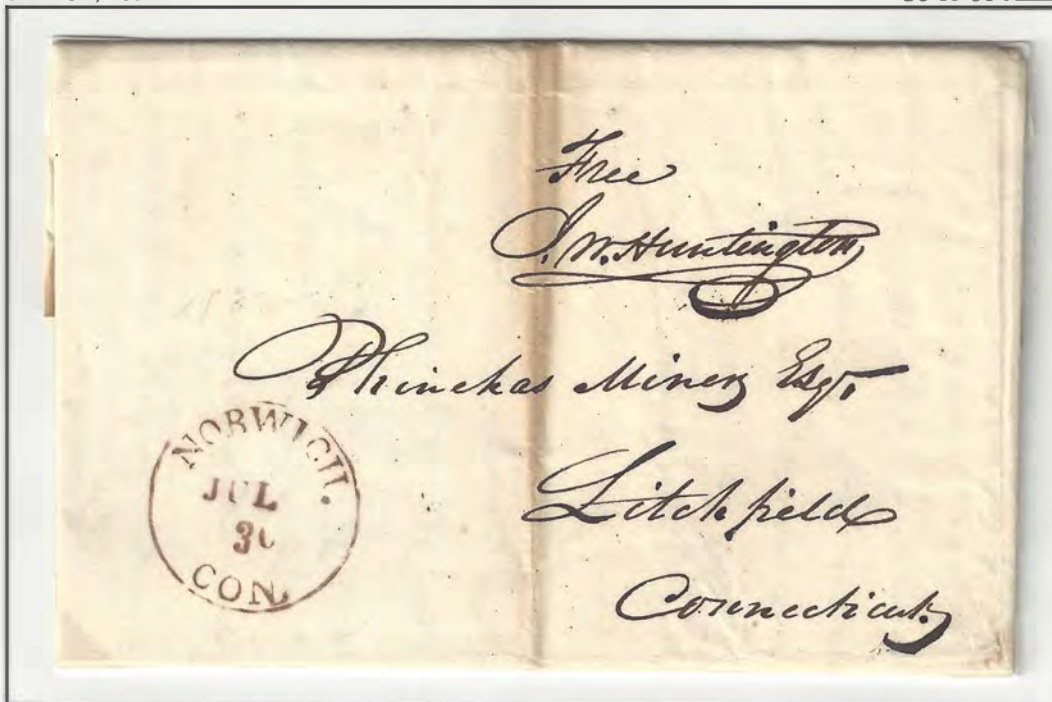 Free
J. W. Huntington
Phinehas Miner Esqr.
Litchfield
Connecticut.
NORWICH.
JUL
30
CON.